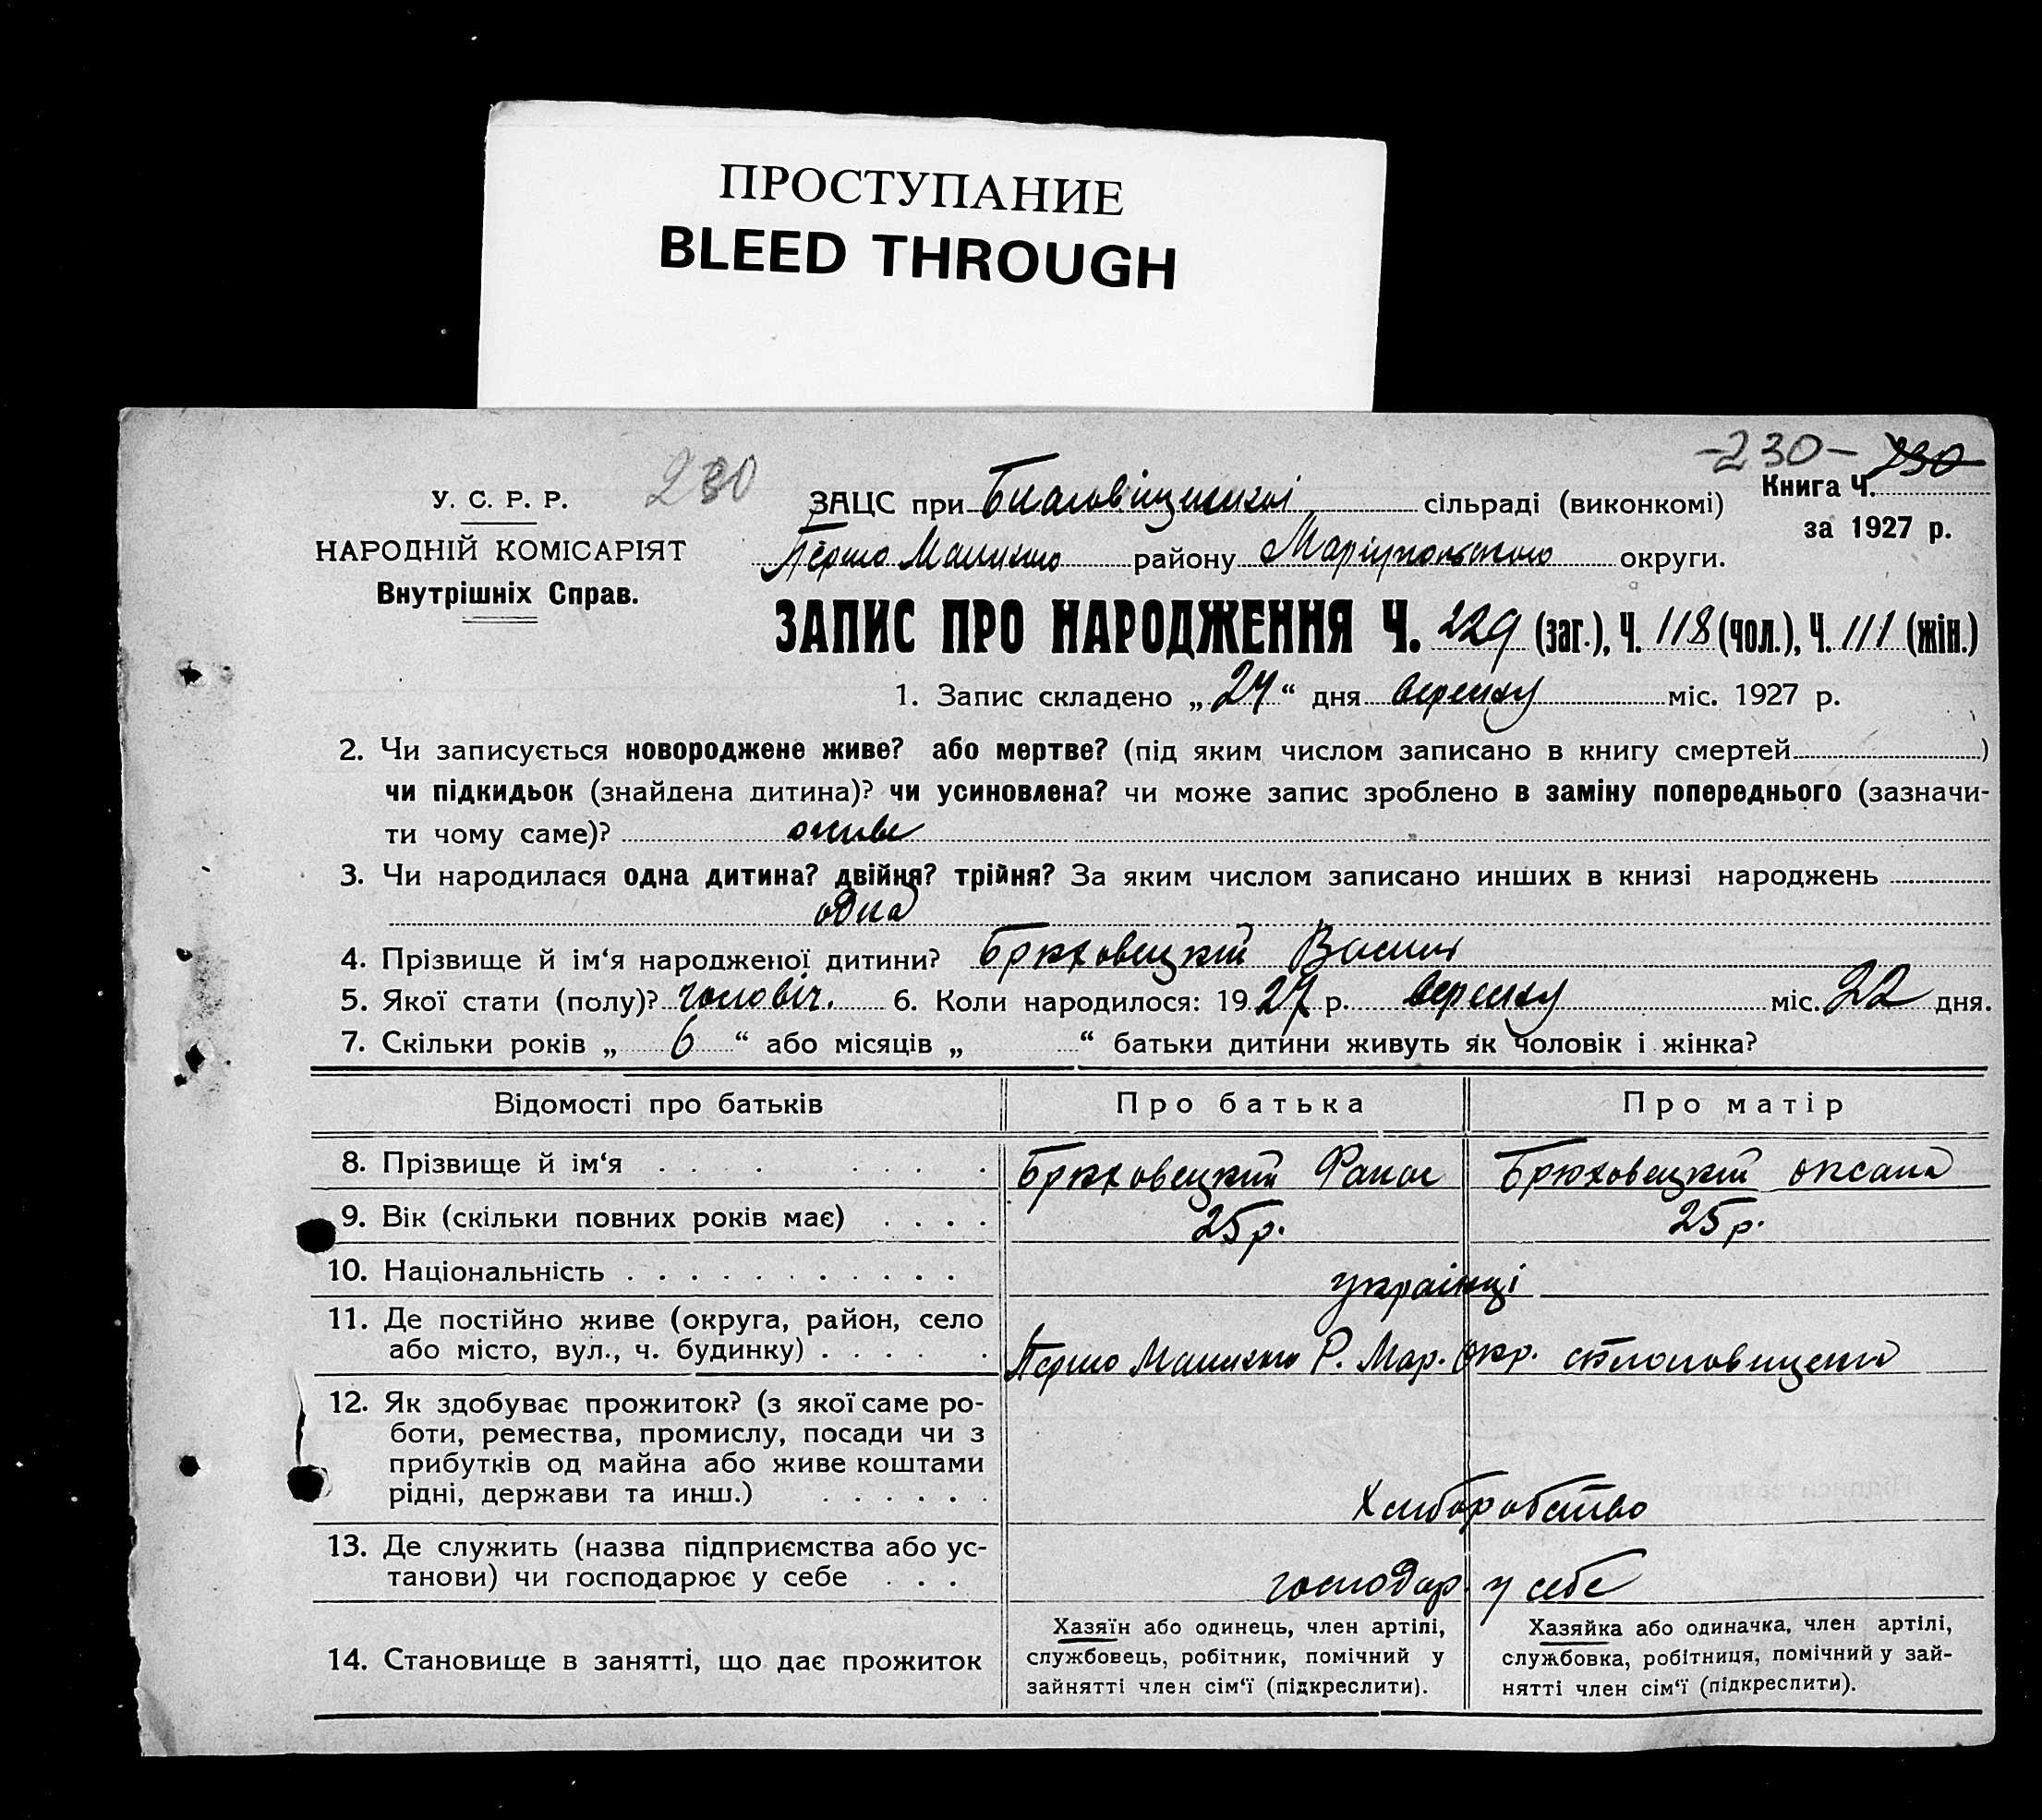 ПРОСТУПАНИЕ
BLEED THROUGH
-230- 230
230
У. С. Р. Р.
ЗАЦС при Благовіщенскі сільраді (виконкомі)
Книга Ч.
за 1927 р.
НАРОДНІЙ КОМІСАРІЯТ
району Маріупольского округи.
Внутрішніх Справ.
ЗАПИС ПРО НАРОДЖЕННЯ Ч. 229 (заг.), Ч. 118 (чол.), Ч. 111 (жін.)
1. Запис складено „ 24 “ дня вересня міс. 1927 р.
2. Чи записується новороджене живе? або мертве? (під яким числом записано в книгу смертей )
чи підкидьок (знайдена дитина)? чи усиновлена? чи може запис зроблено в заміну попереднього (зазначи-
ти чому саме)? живе
3. Чи народилася одна дитина? двійня? трійня? За яким числом записано инших в книзі народжень
одна
4. Прізвище й ім‘я народженої дитини? Брюховецкий Василь
5. Якої стати (полу)? чоловіч. 6. Коли народилося: 1927 р. вересня міс. 22 дня.
7. Скільки років „ 6 “ або місяців „ “ батьки дитини живуть як чоловік і жінка?
Відомості про батьків Про батька Про матір
8. Прізвище й ім‘я Брюховецкий Брюховецкий Оксана
9. Вік (скільки повних років має) 25 р. 25 р.
10. Національність українці
11. Де постійно живе (округа, район, село
або місто, вул., ч. будинку) Р. Мар. Окр.
12. Як здобуває прожиток? (з якої саме ро-
боти, ремества, промислу, посади чи з
прибутків од майна або живе коштами
рідні, держави та инш.) Хлиборобство
13. Де служить (назва підприємства або ус-
танови) чи господарює у себе господар. у себе
14. Становище в занятті, що дає прожиток
Хазяїн або одинець, член артілі,
службовець, робітник, помічний у
зайнятті член сім‘ї (підкреслити).
Хазяйка або одиначка, член артілі,
службовка, робітниця, помічний у зай-
нятті член сім‘ї (підкреслити).